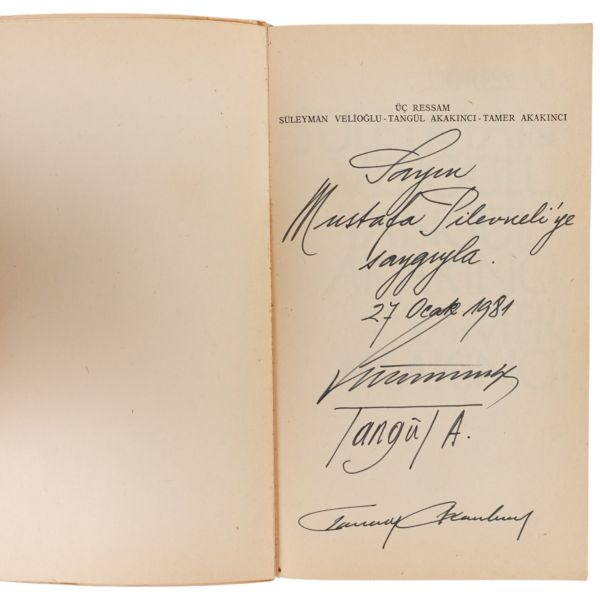 ÜÇ RESSAM
SÜLEYMAN VELİOĞLU - TANGÜL AKAKINCI - TAMER AKAKINCI
Sayın
Mustafa Pilevneli'ye
saygıyla.
27 Ocak 1981
Tangül A.